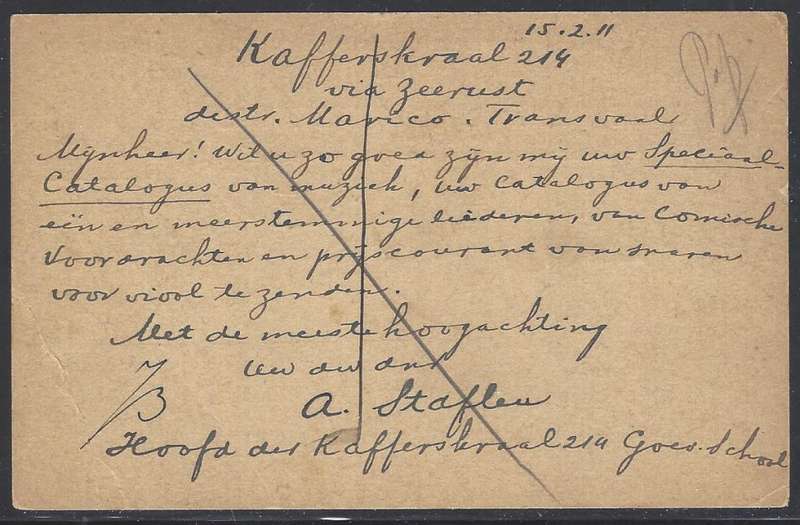 15.2.11
Kafferskraal 214
via Zeerust
destr. Marico. Transvaal
Mijnheer! Wil u zo goed zijn mij uw Speciaal-
Catalogus van muziek, uw Catalogus van
eën en meerstemmige liederen, van Comische
Voordrachten en prijscourant van snaren
voor viool te zenden.
Met de meeste hoogachting
Uw dw dnr
A. Staflen
Hoofd der Kafferskraal 214 Gov. School